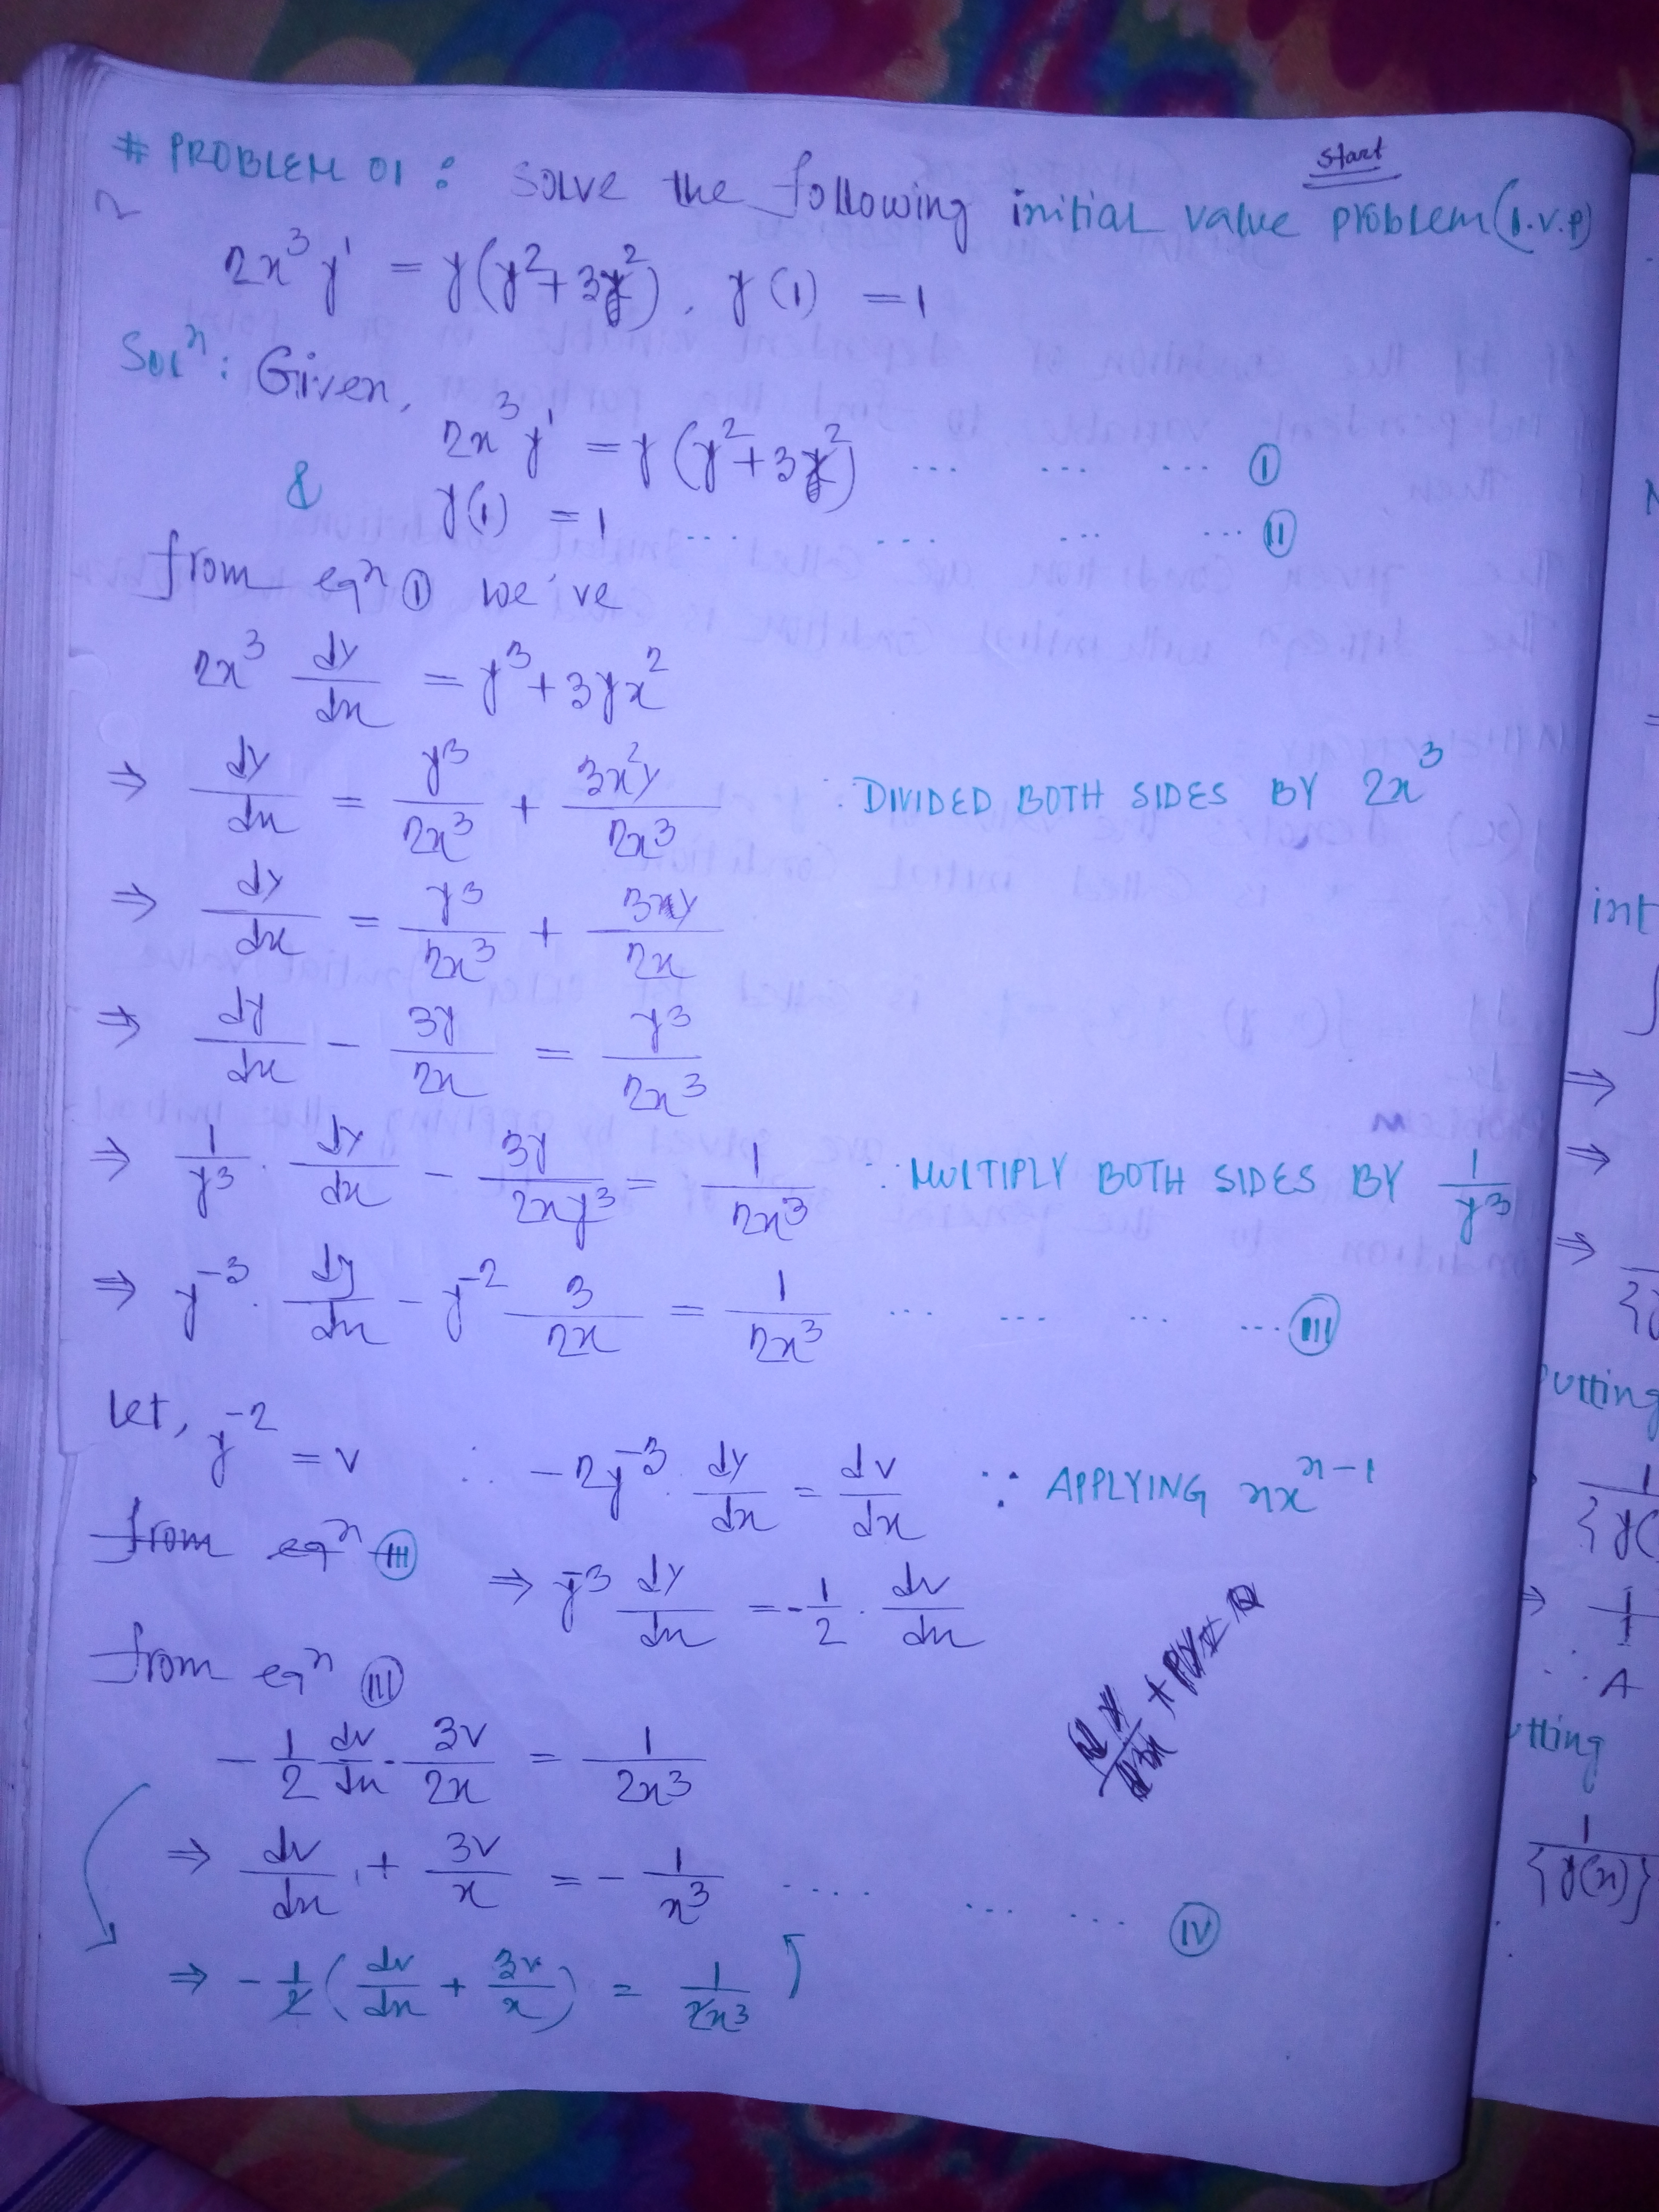 Start
# PROBLEM 01 : Solve the following initial value problem (I.V.P)
2x³y' = y(y²+3x²), y(1) = 1
Solⁿ: Given,
2x³y' = y(y²+3x²) ... ... ... Ⓘ
& y(1) = 1 ... ... ... ... Ⓘⓘ
from eqⁿ Ⓘ we've
2x³ dy/dx = y³+3yx²
⇒ dy/dx = y³/2x³ + 3x²y/2x³ ∵ DIVIDED BOTH SIDES BY 2x³
⇒ dy/dx = y³/2x³ + 3y/2x
⇒ dy/dx - 3y/2x = y³/2x³
⇒ 1/y³ · dy/dx - 3y/2xy³ = 1/2x³ ∵ MULTIPLY BOTH SIDES BY 1/y³
⇒ y⁻³ · dy/dx - y⁻² 3/2x = 1/2x³ ... ... ... ... (III)
Let, y⁻² = v ∴ -2y⁻³ · dy/dx = dv/dx ∵ APPLYING nxⁿ⁻¹
from eqⁿ (III)
⇒ y⁻³ dy/dx = -1/2 · dv/dx
from eqⁿ (III)
-1/2 dv/dx - 3v/2x = 1/2x³
⇒ dv/dx + 3v/x = -1/x³ .... ... ... (IV)
⇒ -1/2 (dv/dx + 3v/x) = 1/2x³
int
⇒
⇒
⇒
Putting
⇒
∴ A
tting
1/{y(x)}